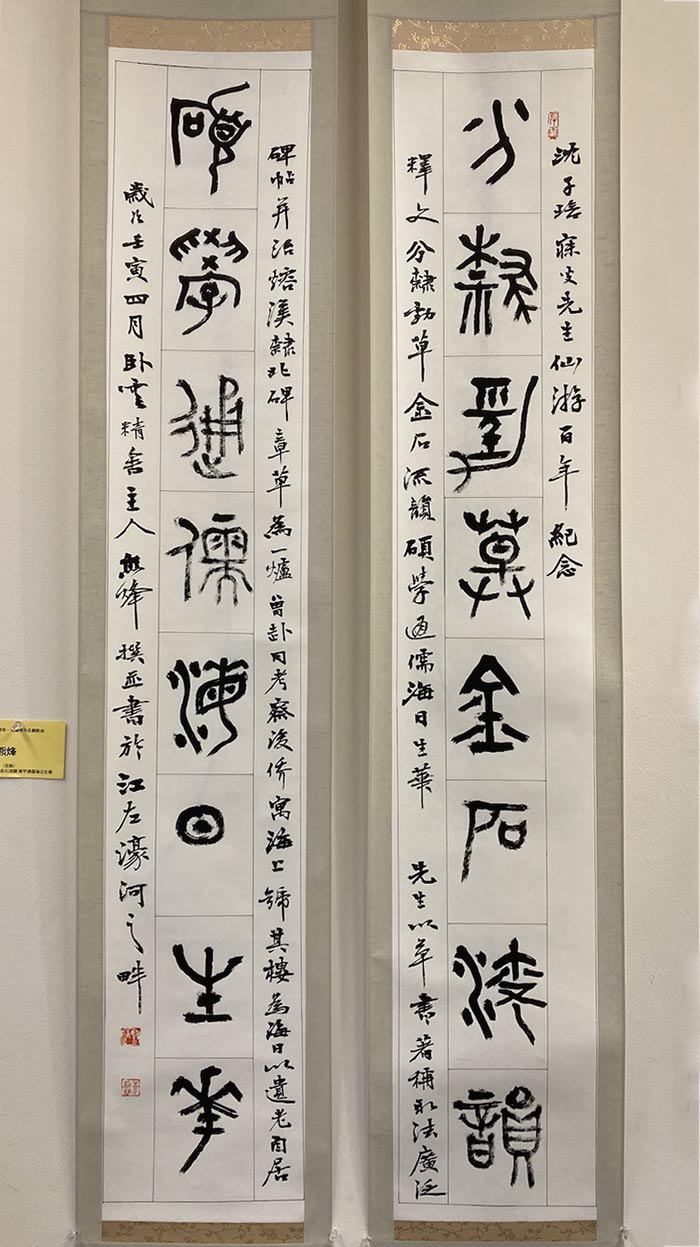 沈子培寐叟先生仙游百年紀念
分隸勁草金石流韻
釋文分隸勁草金石流韻碩學通儒海日生華 先生以草書著稱取法廣泛
碑帖并治熔漢隸北碑章草為一爐曾赴日考察後僑寓海上號其樓為海日以遺老自居
碩學通儒海日生華
歲次壬寅四月臥雲精舍主人熊烽撰並書於江左濠河之畔
熊烽